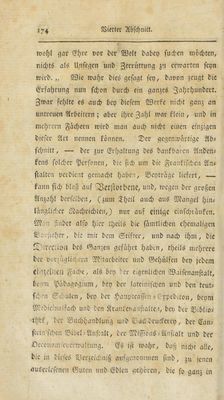 174 Vierter Abschnitt.
wohl gar Ehre vor der Welt dabey suchen möchten,
nichts als Unsegen und Zerrüttung zu erwarten seyn
wird." Wie wahr dies gesagt sey, davon zeugt die
Erfahrung nun schon durch ein ganzes Jahrhundert.
Zwar fehlte es auch bey diesem Werke nicht ganz an
untreuen Arbeitern; aber ihre Zahl war klein, und in
mehrern Fächern wird man auch nicht einen einzigen
dieser Art nennen können. Der gegenwärtige Ab-
schnitt, — der zur Erhaltung des dankbaren Anden-
kens solcher Personen, die sich um die Frankischen An-
stalten verdient gemacht haben, Beyträge liefert, —
kann sich bloß auf Verstorbene, und wegen der großen
Anzahl derselben, (zum Theil auch aus Mangel hin-
länglicher Nachrichten,) nur auf einige einschränken.
Man findet also hier theils die sämtlichen ehemaligen
Vorsteher, die mit dem Stifter, und nach ihm, die
Direction des Ganzen geführt haben, theils mehrere
der vorzüglichern Mitarbeiter und Gehülfen bey jedem
einzelnen Fache, als bey der eigenlichen Waisenanstalt,
beym Pädagogium, bey der lateinischen und den teut-
schen Schulen, bey der Hauptcassen-Expedition, beym
Medicinalfach und den Krankenanstalten, bey der Biblio-
thek, der Buchhandlung und Buchdruckerey, der Can-
steinschen Bibel-Anstalt, der Missions-Anstalt und der
Oeconomieverwaltung. Es ist wahr, daß nicht alle,
die in dieses Verzeichniß aufgenommen sind, zu jenen
auserlesenen Guten und Edlen gehören, die so ganz in